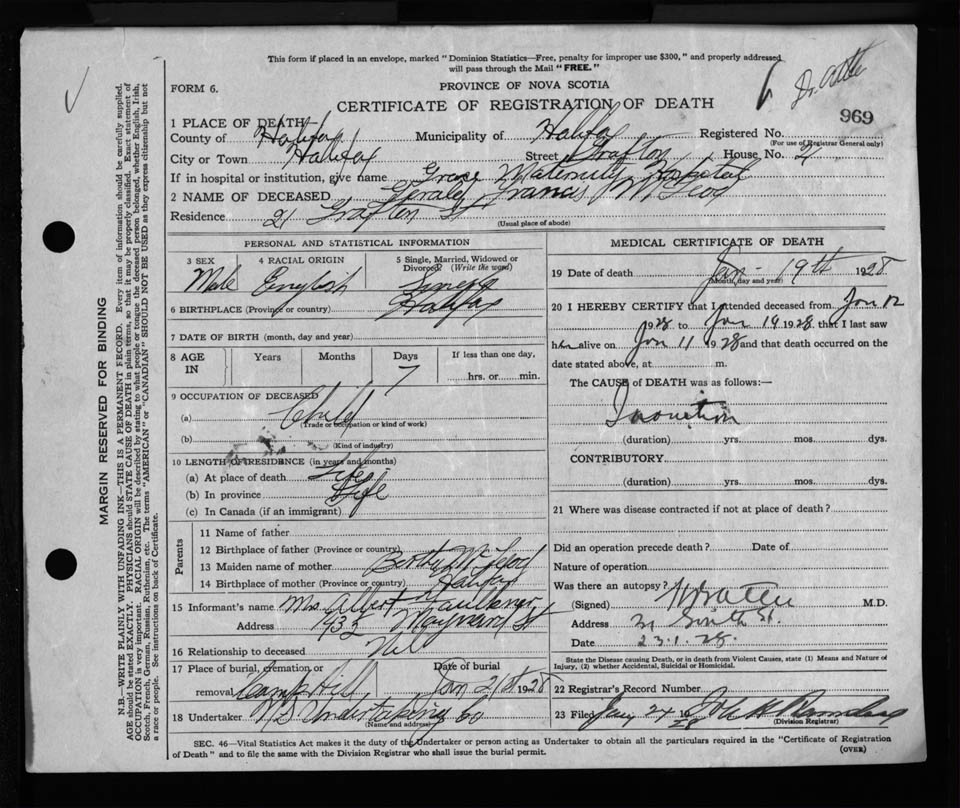 This form if placed in an envelope, marked "Dominion Statistics—Free, penalty for improper use $300," and properly addressed
will pass through the Mail "FREE."
FORM 6.
PROVINCE OF NOVA SCOTIA
CERTIFICATE OF REGISTRATION OF DEATH
969
1 PLACE OF DEATH
County of Halifax Municipality of Halifax Registered No.
(For use of Registrar General only)
City or Town Halifax Street Grafton House No. 21
If in hospital or institution, give name Grace Maternity Hospital
2 NAME OF DECEASED Francis McLeod
Residence 21 Grafton St
(Usual place of abode)
PERSONAL AND STATISTICAL INFORMATION
3 SEX 4 RACIAL ORIGIN 5 Single, Married, Widowed or Divorced? (Write the word)
Male English Single
6 BIRTHPLACE (Province or country) Halifax
7 DATE OF BIRTH (month, day and year)
8 AGE IN Years Months Days If less than one day,
7 hrs. or min.
9 OCCUPATION OF DECEASED
(a) Child
(Trade or occupation or kind of work)
(b)
(Kind of industry)
10 LENGTH OF RESIDENCE (in years and months)
(a) At place of death Life
(b) In province Life
(c) In Canada (if an immigrant)
Parents
11 Name of father
12 Birthplace of father (Province or country)
13 Maiden name of mother McLeod
14 Birthplace of mother (Province or country) Halifax
15 Informant's name Mrs Albert Faulkner
Address Maynard St
16 Relationship to deceased Nil
17 Place of burial, cremation, or removal Camp Hill Date of burial Jan 21st 1928
18 Undertaker NS Undertaking Co
(Name and address)
MEDICAL CERTIFICATE OF DEATH
19 Date of death Jan - 19th 1928
(Month, day and year)
20 I HEREBY CERTIFY that I attended deceased from Jan 12
1928 to Jan 19 1928 that I last saw
h alive on Jan 11 1928 and that death occurred on the
date stated above, at m.
The CAUSE of DEATH was as follows:—
Inanition
(duration) yrs. mos. dys.
CONTRIBUTORY
(duration) yrs. mos. dys.
21 Where was disease contracted if not at place of death?
Did an operation precede death? Date of
Nature of operation
Was there an autopsy?
(Signed) M.D.
Address St.
Date 23.1.28.
State the Disease causing Death, or in death from Violent Causes, state (1) Means and Nature of
Injury, (2) whether Accidental, Suicidal or Homicidal.
22 Registrar's Record Number
23 Filed Jany 24 1928
(Division Registrar)
SEC. 46—Vital Statistics Act makes it the duty of the Undertaker or person acting as Undertaker to obtain all the particulars required in the "Certificate of Registration
of Death" and to file the same with the Division Registrar who shall issue the burial permit.
(OVER)
MARGIN RESERVED FOR BINDING
N.B.—WRITE PLAINLY WITH UNFADING INK—THIS IS A PERMANENT RECORD. Every item of information should be carefully supplied.
AGE should be stated EXACTLY. PHYSICIANS should STATE CAUSE OF DEATH in plain terms, so that it may be properly classified. Exact statement of
OCCUPATION is very important. RACIAL ORIGIN will be described by stating to what people or tongue the deceased person belonged, whether English, Irish,
Scotch, French, German, Russian, Ruthenian, etc. The terms "AMERICAN" or "CANADIAN" SHOULD NOT BE USED as they express citizenship but not
a race or people. See instructions on back of Certificate.